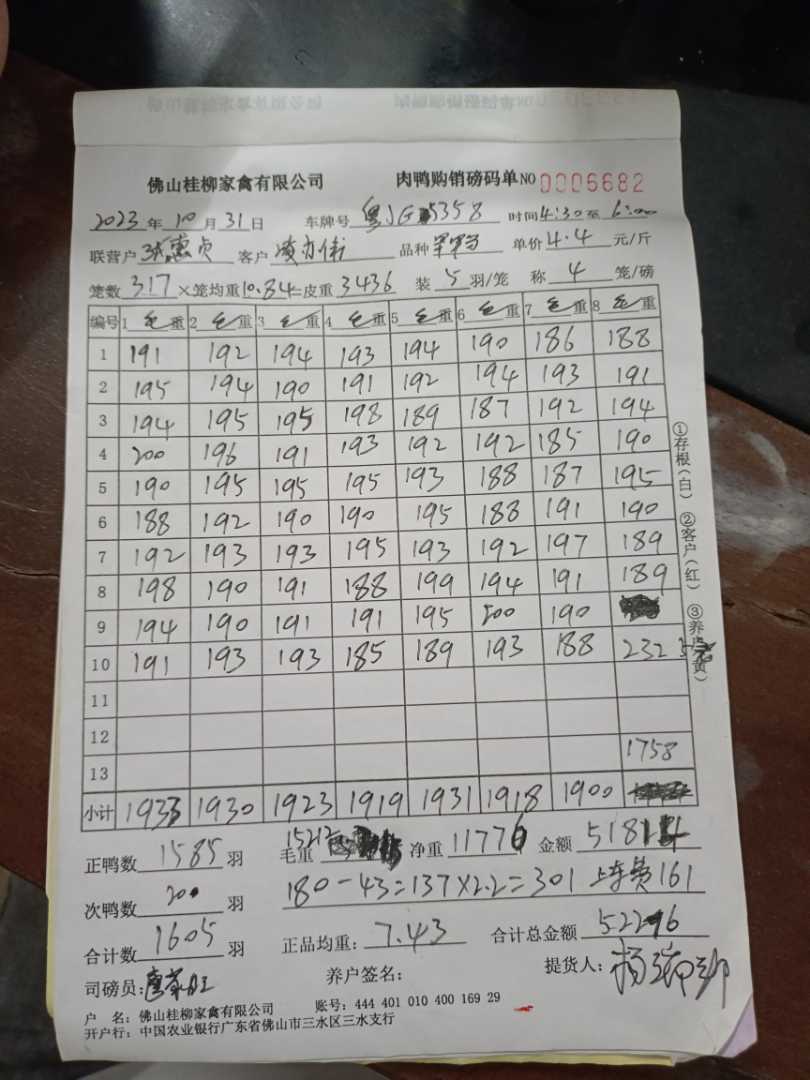 佛山桂柳家禽有限公司 肉鸭购销磅码单NO 0005682
2023年10月31日 车牌号 粤JG5358 时间4:30至6:00
联营户 客户 品种 单价4.4元/斤
笼数317×笼均重10.84=皮重3436 装5羽/笼 称4笼/磅
编号 1毛重 2毛重 3毛重 4毛重 5毛重 6毛重 7毛重 8毛重
1 191 192 194 193 194 190 186 188
2 195 194 190 191 192 194 193 191
3 194 195 195 198 189 187 192 194
4 200 196 191 193 192 192 185 190
5 190 195 195 195 193 188 187 195
6 188 192 190 190 195 188 191 190
7 192 193 193 195 193 192 197 189
8 198 190 191 188 199 194 191 189
9 194 190 191 191 195 200 190
10 191 193 193 185 189 193 188 232
11
12
13 1758
小计 1933 1930 1923 1919 1931 1918 1900
①存根(白) ②客户(红) ③养户(黄)
正鸭数1585羽 毛重15212 净重11776 金额51814
次鸭数 羽 180-43=137×2.2=301 上车费161
合计数1605羽 正品均重:7.43 合计总金额52276
司磅员: 养户签名: 提货人:
户 名:佛山桂柳家禽有限公司 账号:444 401 010 400 169 29
开户行:中国农业银行广东省佛山市三水区三水支行